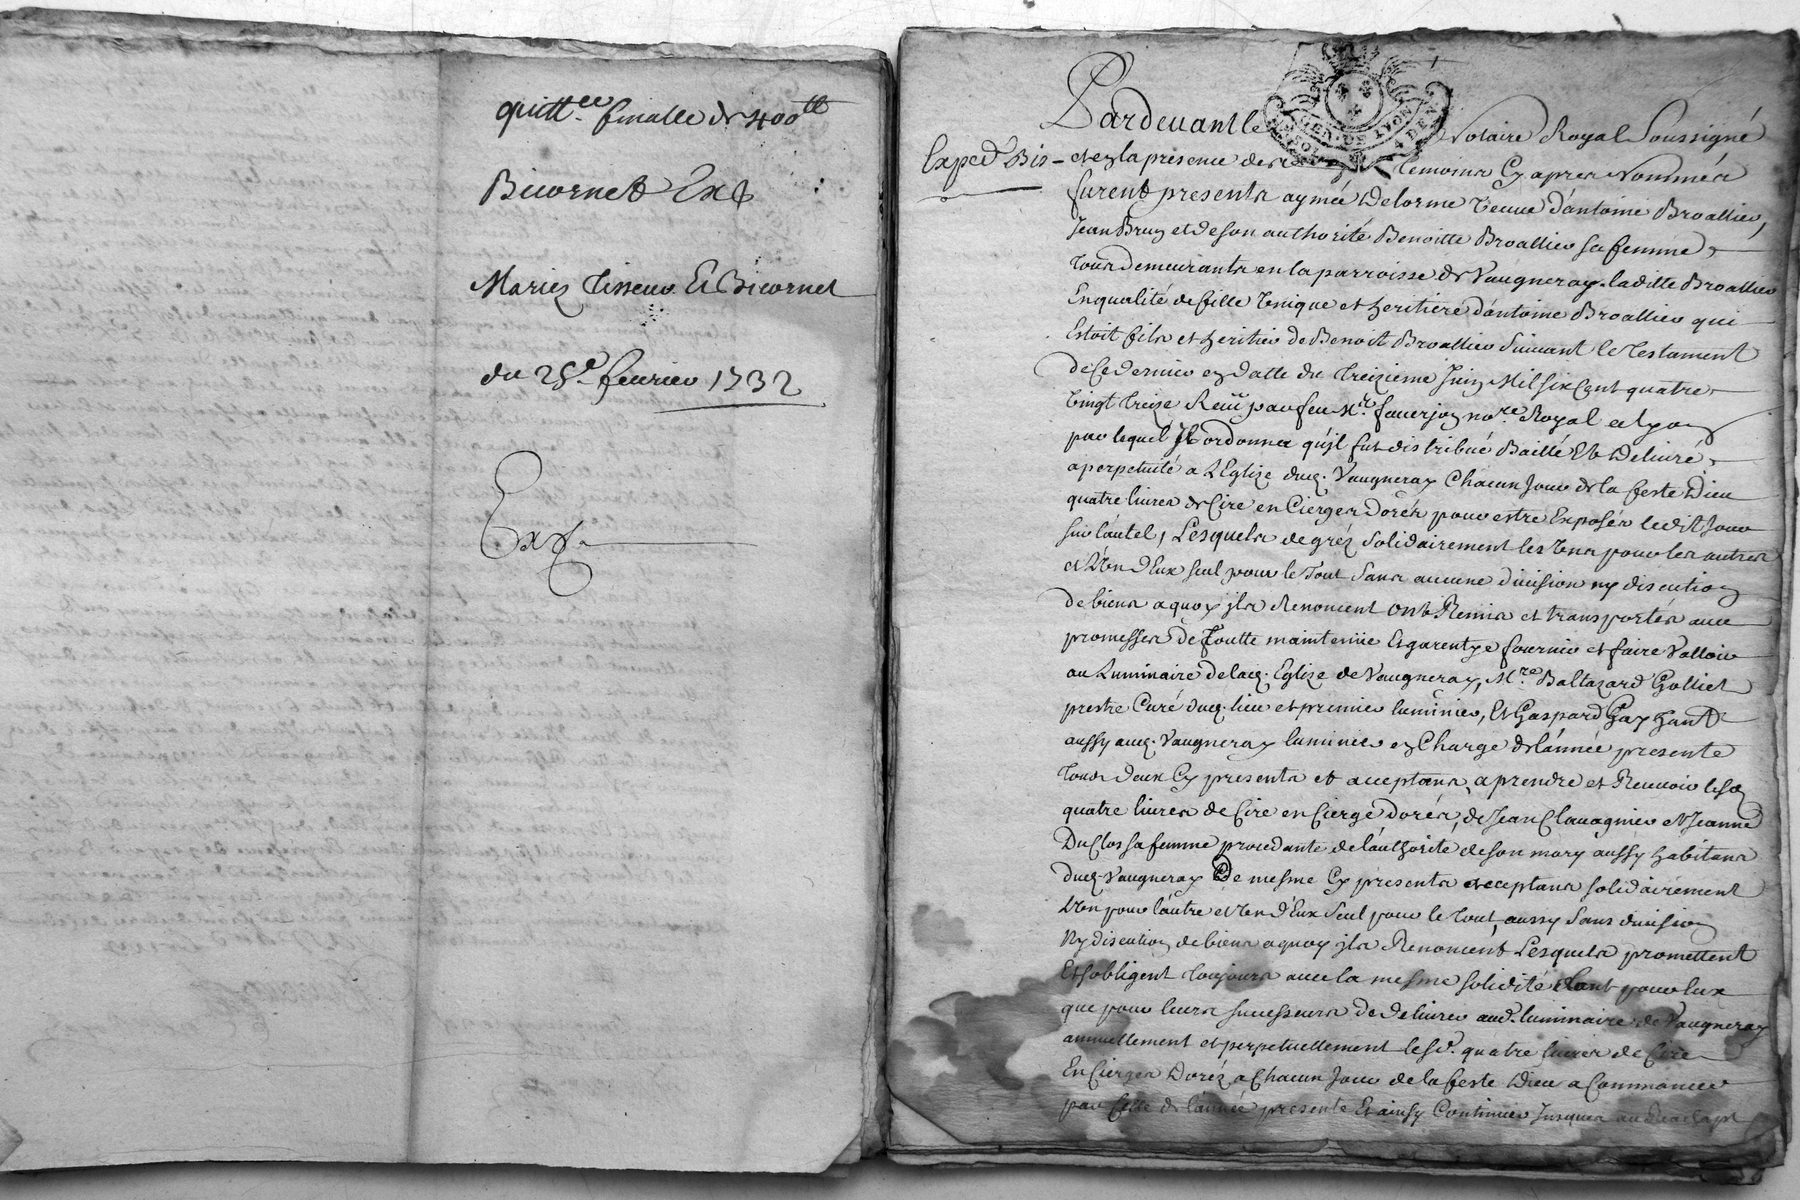 quitt.ce finalle de 400 tt
Bicornet Exp
Mariez Tisseur Et Bicornet
du 25.e feurier 1732
Exp.
Expéd. Bis
Pardeuant le Notaire Royal Soussigné
et en la presence des temoins Cy apres Nommés
furent presents aymée Delorme Veuue d'antoine Broallier,
Jean Brun et de son authorité Benoitte Broallier sa femme,
tous demeurants en la parroisse de Vaugneray. laditte Broallier
En qualité de fille Vnique et heritiere d'antoine Broallier qui
Estoit fils et heritier de Benoit Broallier Suiuant le Testament
de Ce dernier en datte du treizieme Juin Mil six Cent quatre
Vingt treize Receu par feu M.e no.re Royal a Lyon
par lequel Il ordonna qu'jl fut distribué Baillé Et Deliuré,
a perpetuité a L'Eglize dud. Vaugneray Chacun Jour de la feste Dieu
quatre liures de Cire en Cierges Dorés pour estre Exposés ledit Jour
sur l'autel, Lesquels de gréz solidairement les Vns pour les autres
et L'Vn d'Eux seul pour le Tout Sans aucune diuision ny discution
de biens a quoy jls Renoncent ont Remis et transportés auec
promesses de Toutte maintenüe Et garentye fournir et faire Valloir
au Luminaire de lad. Eglize de Vaugneray, M.re Baltazard Golliet
prestre Curé dud. lieu et premier luminier, Et Gaspard Gay hant
aussy aud. Vaugneray luminier en Charge de l'année presente
tous deux Cy presents et acceptans, a prendre et Receuoir lesd.
quatre liures de Cire en Cierge Dorés, de Jean Clauagnier et Jeanne
DuClos sa femme procedante de l'authorité de son mary aussy habitans
dud. Vaugneray De mesme Cy presents et acceptans solidairement
L'Vn pour l'autre et Vn d'Eux Seul pour le Tout, aussy Sans diuision
Ny discution de biens a quoy jls Renoncent Lesquels promettent
Et s'obligent toujours auec la mesme solidité tant pour Eux
que pour leurs successeurs de deliurer aud. luminaire de Vaugneray
annuellement et perpetuellement lesd. quatre liures de Cire
En Cierges Doréz a Chacun Jour de la feste Dieu a Commancer
par Celle de l'année presente Et ainsy Continuer Jusques au